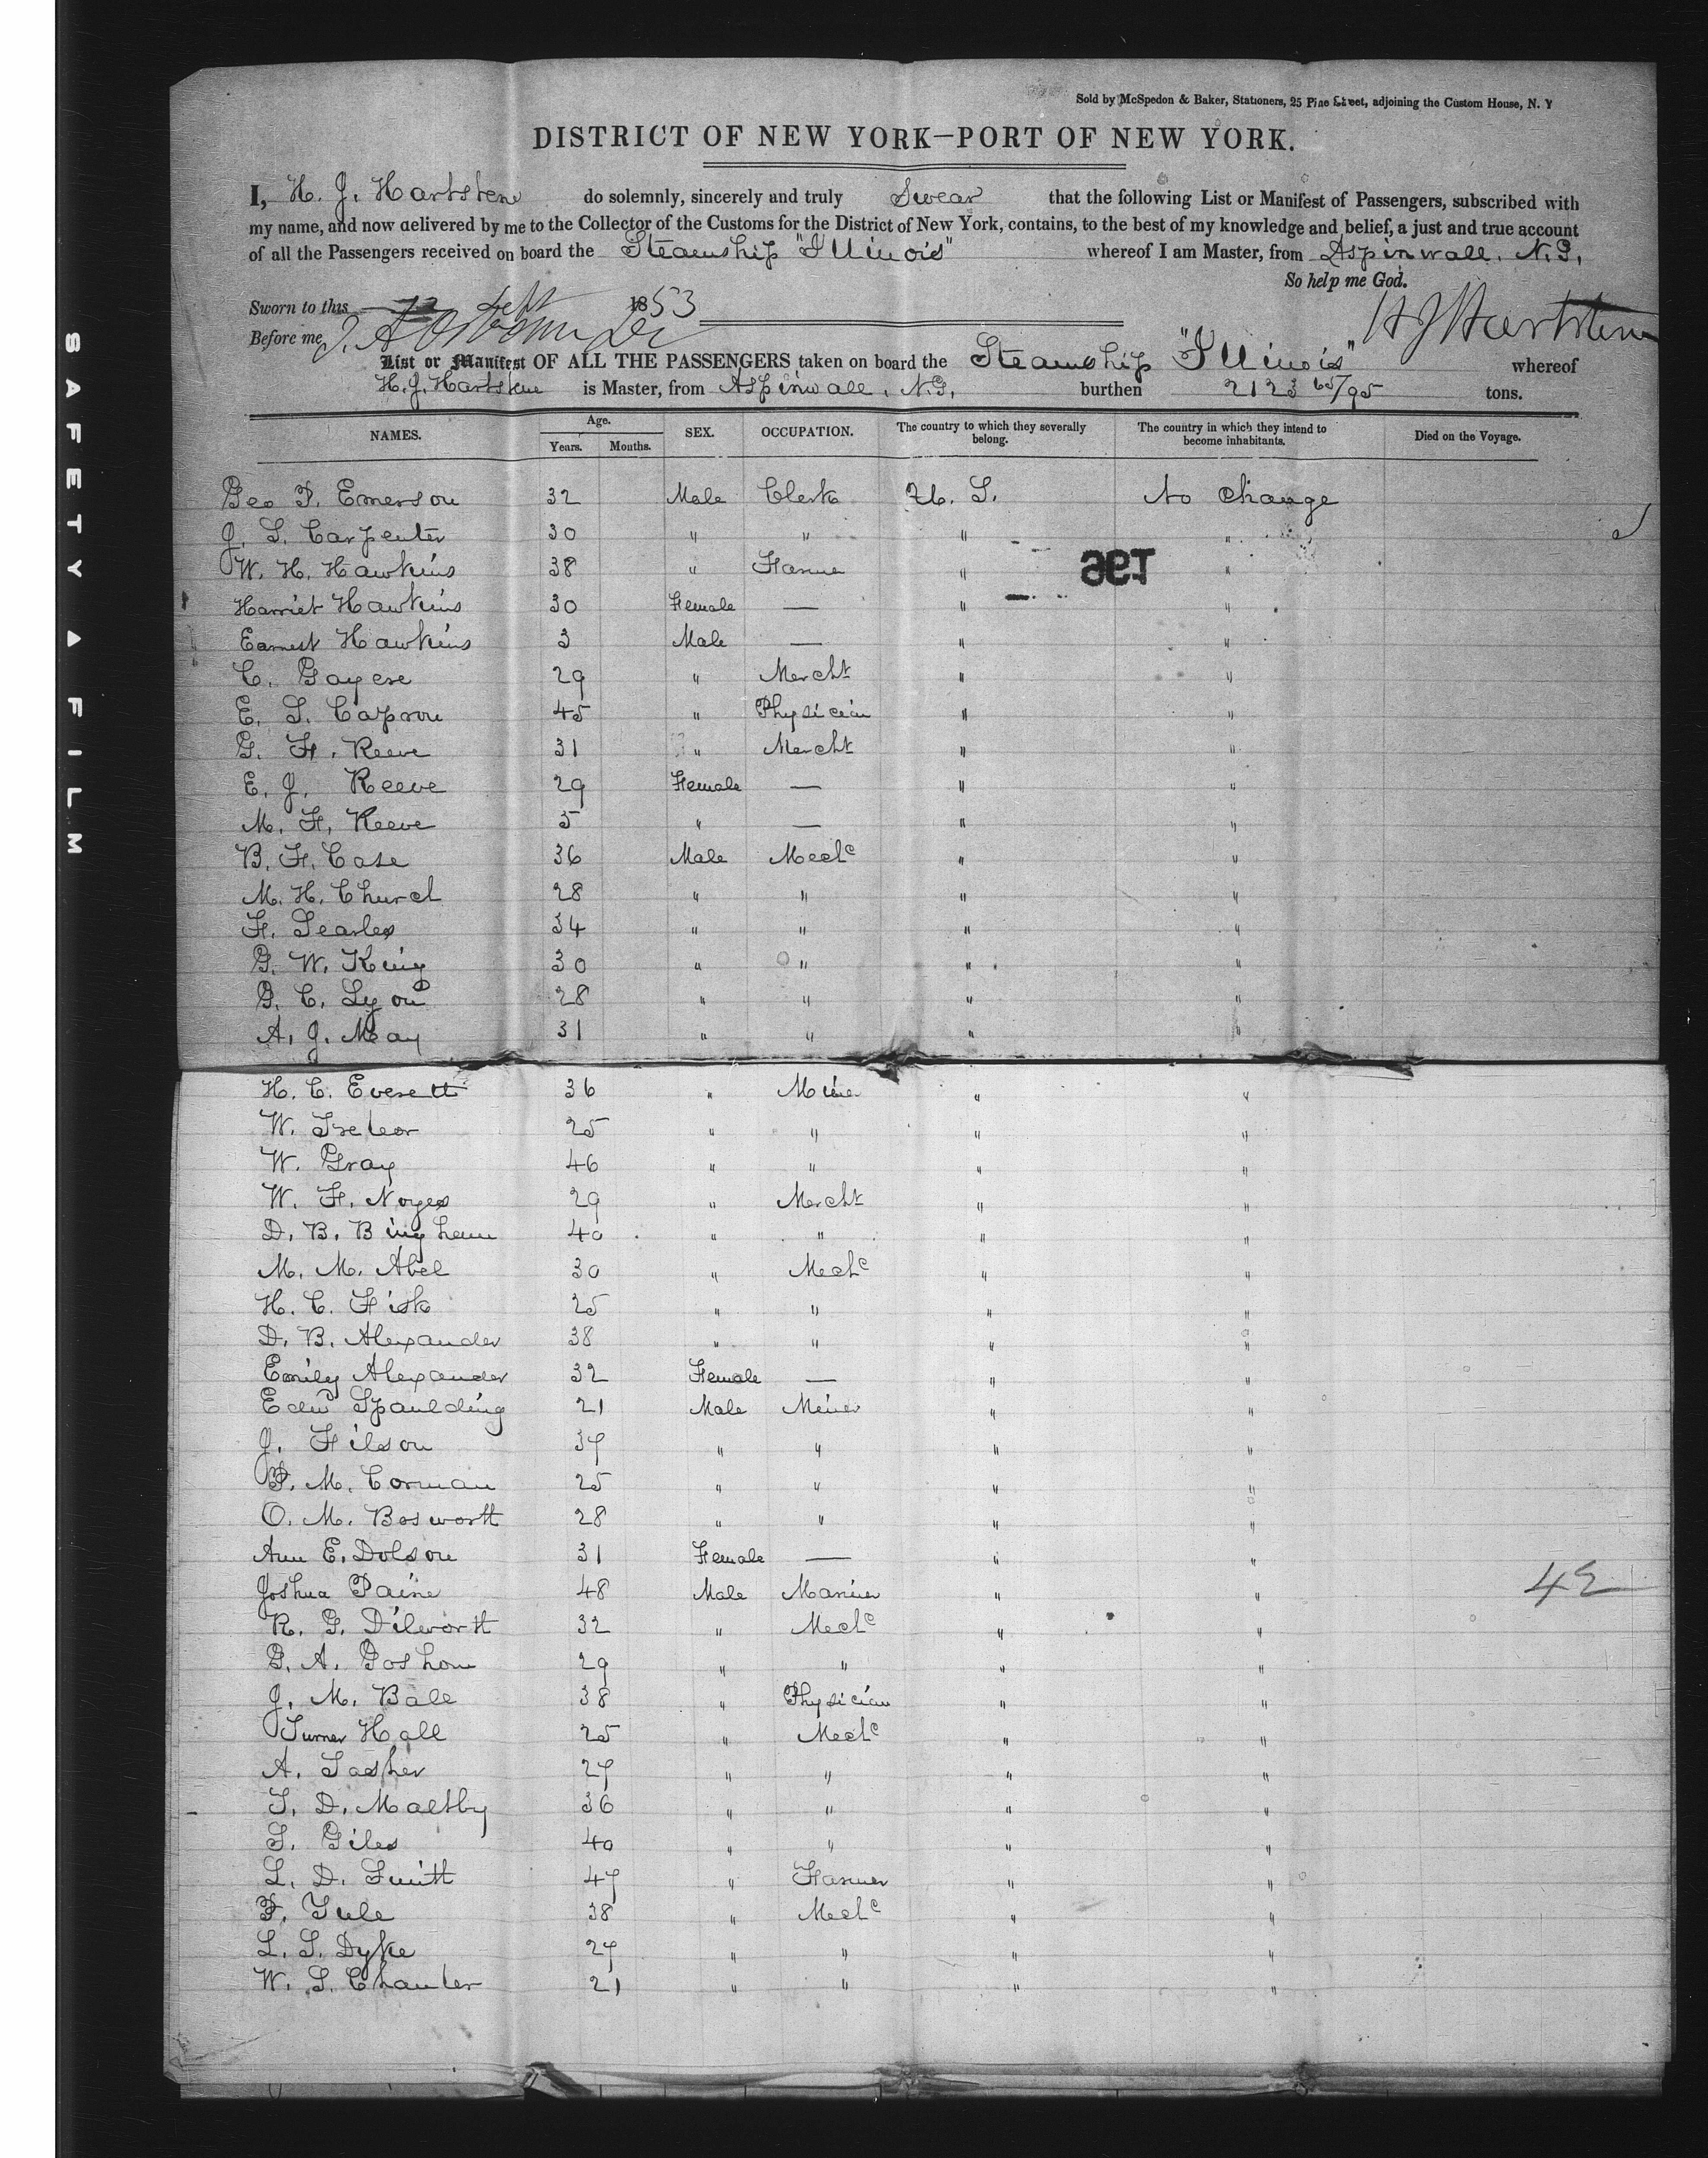 Sold by McSpedon & Baker, Stationers, 25 Pine Street, adjoining the Custom House, N. Y
DISTRICT OF NEW YORK—PORT OF NEW YORK.
I, H. J. Hartstene do solemnly, sincerely and truly Swear that the following List or Manifest of Passengers, subscribed with
my name, and now delivered by me to the Collector of the Customs for the District of New York, contains, to the best of my knowledge and belief, a just and true account
of all the Passengers received on board the Steamship "Illinois" whereof I am Master, from Aspinwall, N.G.
So help me God.
Sworn to this Sept 1853
Before me, H J Hartstene
List or Manifest OF ALL THE PASSENGERS taken on board the Steamship "Illinois" whereof
H. J. Hartstene is Master, from Aspinwall, N.G. burthen 2123 65/95 tons.
NAMES. Age. Years. Months. SEX. OCCUPATION. The country to which they severally belong. The country in which they intend to become inhabitants. Died on the Voyage.
Geo F. Emerson 32 Male Clerk U. S. No Change
J. S. Carpenter 30 " " " "
W. H. Hawkins 38 " Farmer " "
196
Harriet Hawkins 30 Female — " "
Earnest Hawkins 3 Male — " "
C. Gayere 29 " Mercht " "
E. S. Capron 45 " Physician " "
G. F. Reeve 31 " Mercht " "
E. J. Reeve 29 Female — " "
M. F. Reeve 5 " — " "
B. F. Case 36 Male Mechc " "
M. H. Church 28 " " " "
F. Searles 34 " " " "
G. W. King 30 " " " "
G. C. Lyon 28 " " " "
A. J. May 31 " " " "
H. C. Everett 36 " Miner " "
W. 25 " " " "
W. Gray 46 " " " "
W. F. Noyes 29 " Mercht " "
D. B. Bingham 40 " " " "
M. M. Abel 30 " Mechc " "
H. C. Fisk 25 " " " "
D. B. Alexander 38 " " " "
Emily Alexander 32 Female — " "
Edw Spaulding 21 Male Miner " "
J. Filson 37 " " " "
P. M. Corman 25 " " " "
O. M. Bosworth 28 " " " "
Ann E. Dolson 31 Female — " "
Joshua Paine 48 Male Mariner " "
42
R. G. Dilworth 32 " Mechc " "
G. A. Goshom 29 " " " "
J. M. Ball 38 " Physician " "
Turner Hall 25 " Mechc " "
A. Tasher 27 " " " "
T. D. Maltby 36 " " " "
S. Giles 40 " " " "
L. D. Smith 47 " Farmer " "
F. Yule 38 " Mechc " "
L. S. Dyke 27 " " " "
W. S. Chanler 21 " " " "
SAFETY A FILM